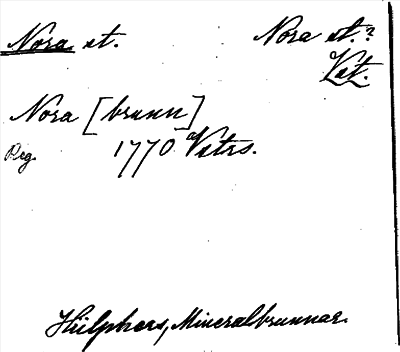 Nora st. Nora st.?
Vst.
Nora [brunn]
Reg. 1770 Vstrs.
Hülphers, Mineralbrunnar.